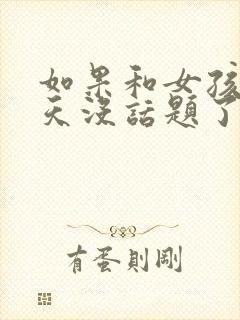 如果和女孩
天没话题了
有蛋則剛